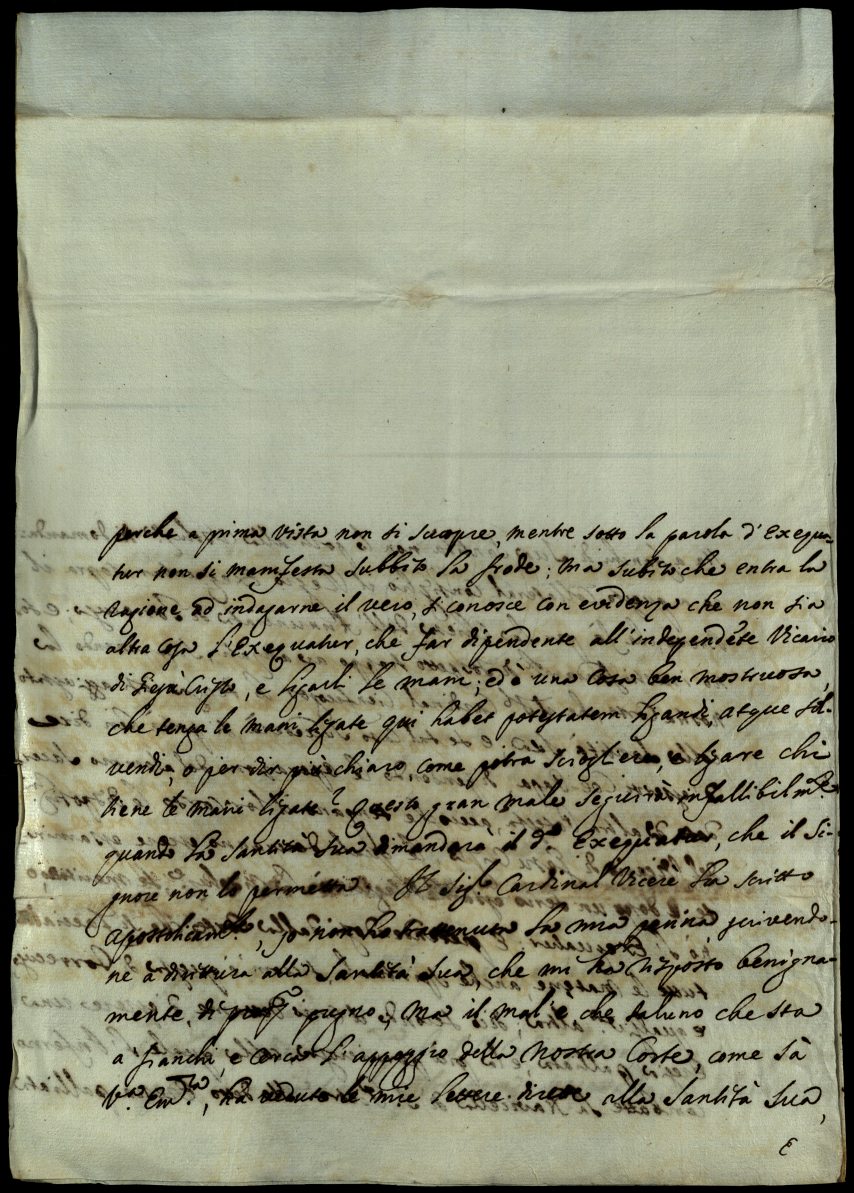 perche a prima vista non si scuopre, mentre sotto la parola d'Exequa-
tur non si manifesta subbito la frode; Ma subito che entra la
ragione ad indagarne il vero, si conosce con evidenza che non sia
altra cosa l'Exequatur, che far dipendente all'independẽte Vicario
di Giesù Cristo, e ligarli le mani; ed è una cosa ben mostruosa,
che tenga le mani ligate qui habet potestatem ligandi, atque sol-
vendi, o per dir più chiaro, come potrà sciogliere, e ligare chi
tiene le mani ligate? Questo gran male seguirà infallibilm.te
quando la Santità Sua dimanderà il d.o Exequatur, che il Si-
gnore non lo permetta. Il Sig.r Cardinal Vicere ha scritto
apostolicam.te, io non ho trattenuta la mia penna scrivendo-
ne a dirittura alla Santità Sua, che mi ha risposto benigna-
mente, di pugno, Ma il mal'è che taluno che sta
a fianchi, e cerca l'appoggio della nostra Corte, come sà
V.a Em.za, ha veduto le mie lettere dirette alla Santità Sua,
E